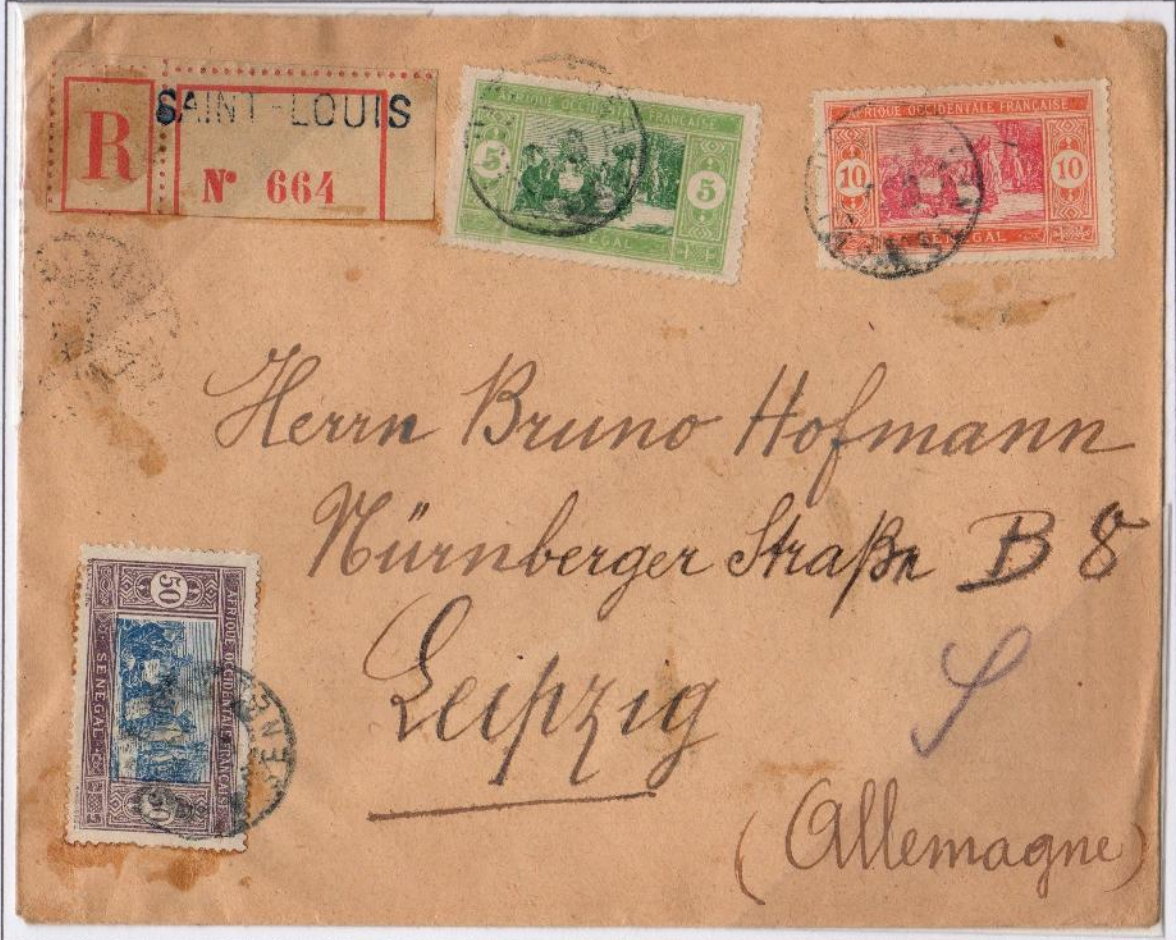 R
SAINT-LOUIS
N° 664
AFRIQUE OCCIDENTALE FRANÇAISE
5 5
SÉNÉGAL
AFRIQUE OCCIDENTALE FRANÇAISE
10 10
SÉNÉGAL
Herrn Bruno Hofmann
Nürnberger Straße B 8
Leipzig
(Allemagne)
50
AFRIQUE OCCIDENTALE FRANÇAISE
SÉNÉGAL
50